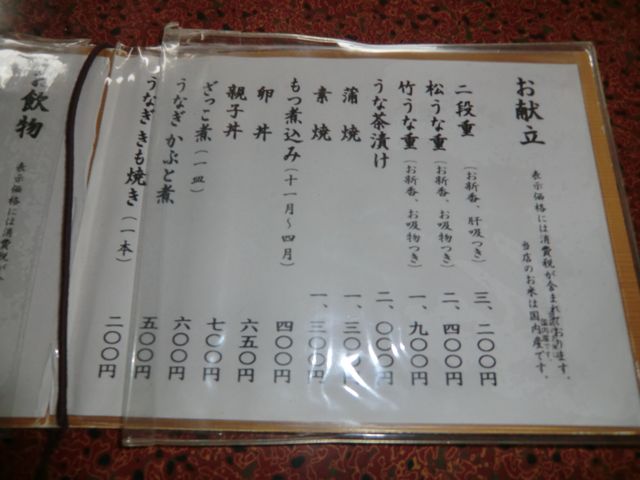 お献立
表示価格には消費税が含まれております。
当店のお米は国内産です。
二段重 (お新香、肝吸つき) 三、二〇〇円
松うな重 (お新香、お吸物つき) 二、四〇〇円
竹うな重 (お新香、お吸物つき) 一、九〇〇円
うな茶漬け 二、〇〇〇円
蒲焼 一、三〇〇円
素焼 一、三〇〇円
もつ煮込み (十一月～四月) 四〇〇円
卵丼 六五〇円
親子丼 七〇〇円
ざっこ煮 (一皿) 六〇〇円
うなぎ かぶと煮 五〇〇円
うなぎ きも焼き (一本) 二〇〇円
お飲物
表示価格には消費税が